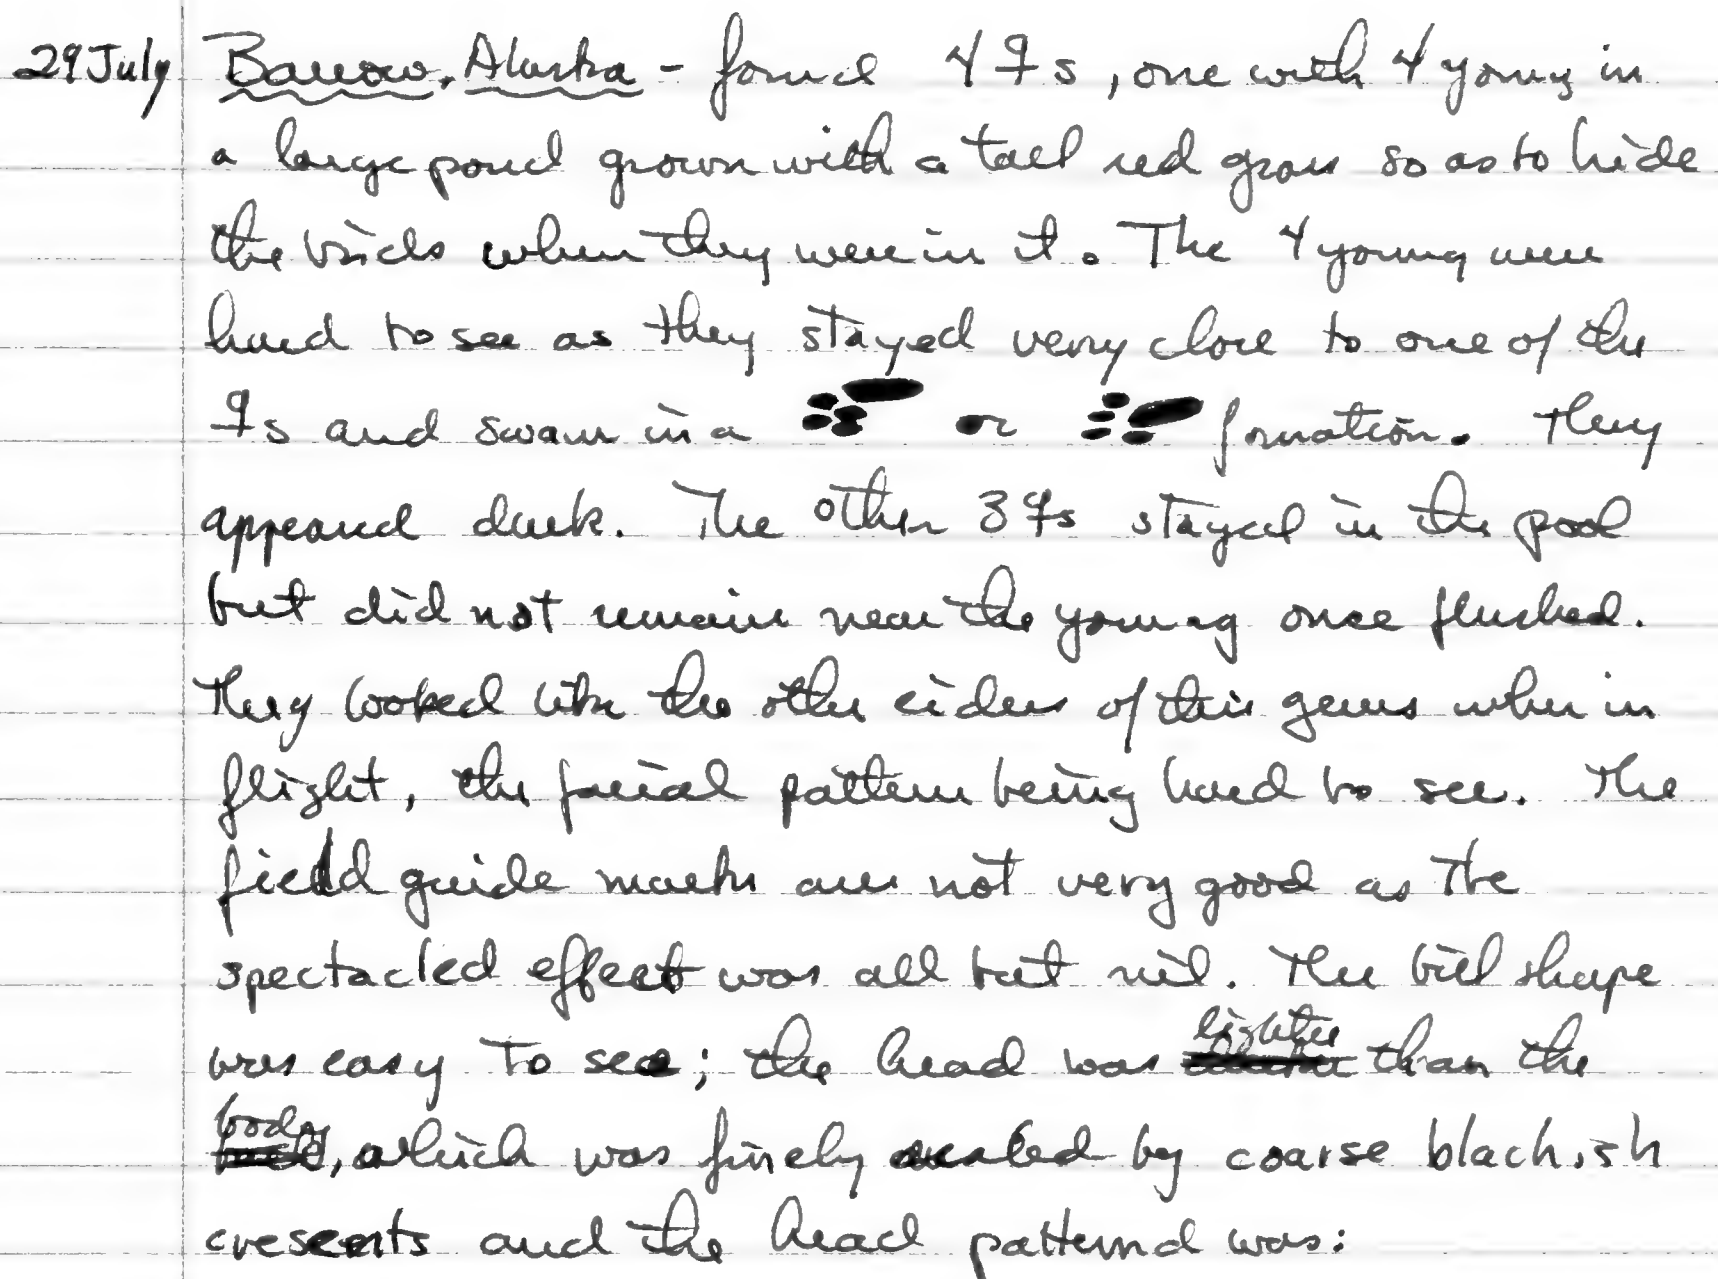 29 July Barrow, Alaska - found 4 ♀s, one with 4 young in
a large pond grown with a tall red grass so as to hide
the birds when they were in it. The 4 young were
hard to see as they stayed very close to one of the
♀s and swam in a or formation. They
appeared dark. The other 3 ♀s stayed in the pool
but did not remain near the young once flushed.
They looked like the other eiders of this genus when in
flight, the facial pattern being hard to see. The
field guide marks are not very good as the
spectacled effect was all but nil. The bill shape
was easy to see; the head was lighter than the
body, which was finely by coarse blackish
cresents and the head patternd was: